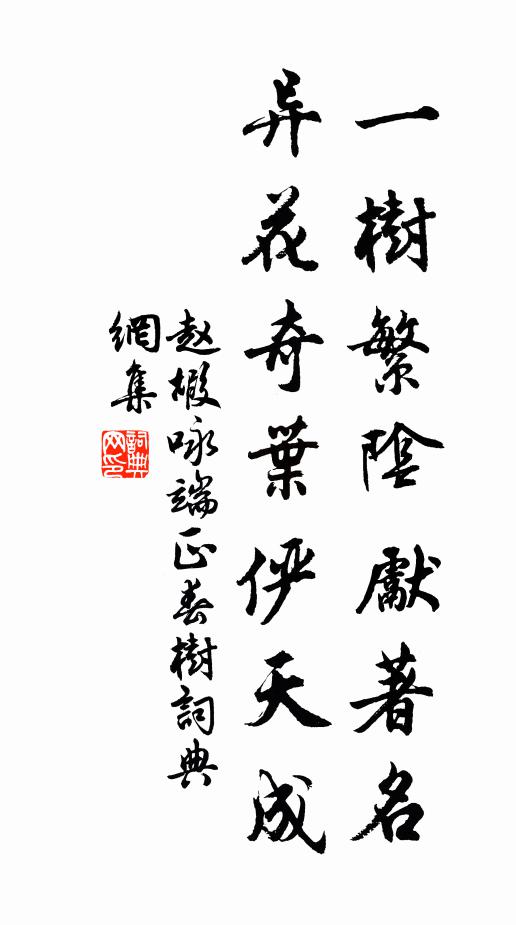 一樹繁陰獻著名
异花奇葉俨天成
赵嘏咏端正春樹詞典
網集
詞典
网印